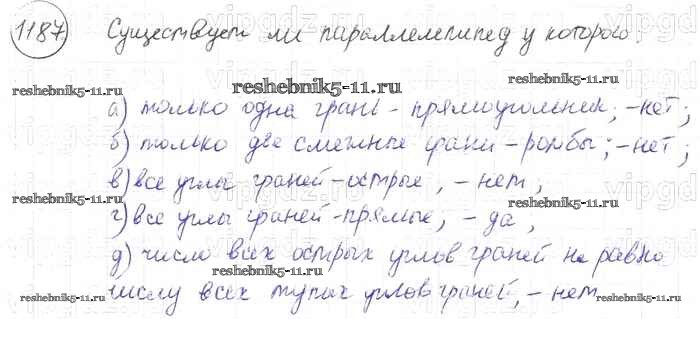 1187 Существует ли параллелепипед у которого:
reshebnik5-11.ru
reshebnik5-11.ru reshebnik5-11.ru
а) только одна грань - прямоугольник; - нет;
б) только две смежные грани - ромбы; - нет;
reshebnik5-11.ru reshebnik5-11.ru
в) все углы граней - острые, - нет;
г) все углы граней - прямые; - да,
reshebnik5-11.ru
д) число всех острых углов граней не равно
reshebnik5-11.ru reshebnik5-11.ru
числу всех тупых углов граней, - нет